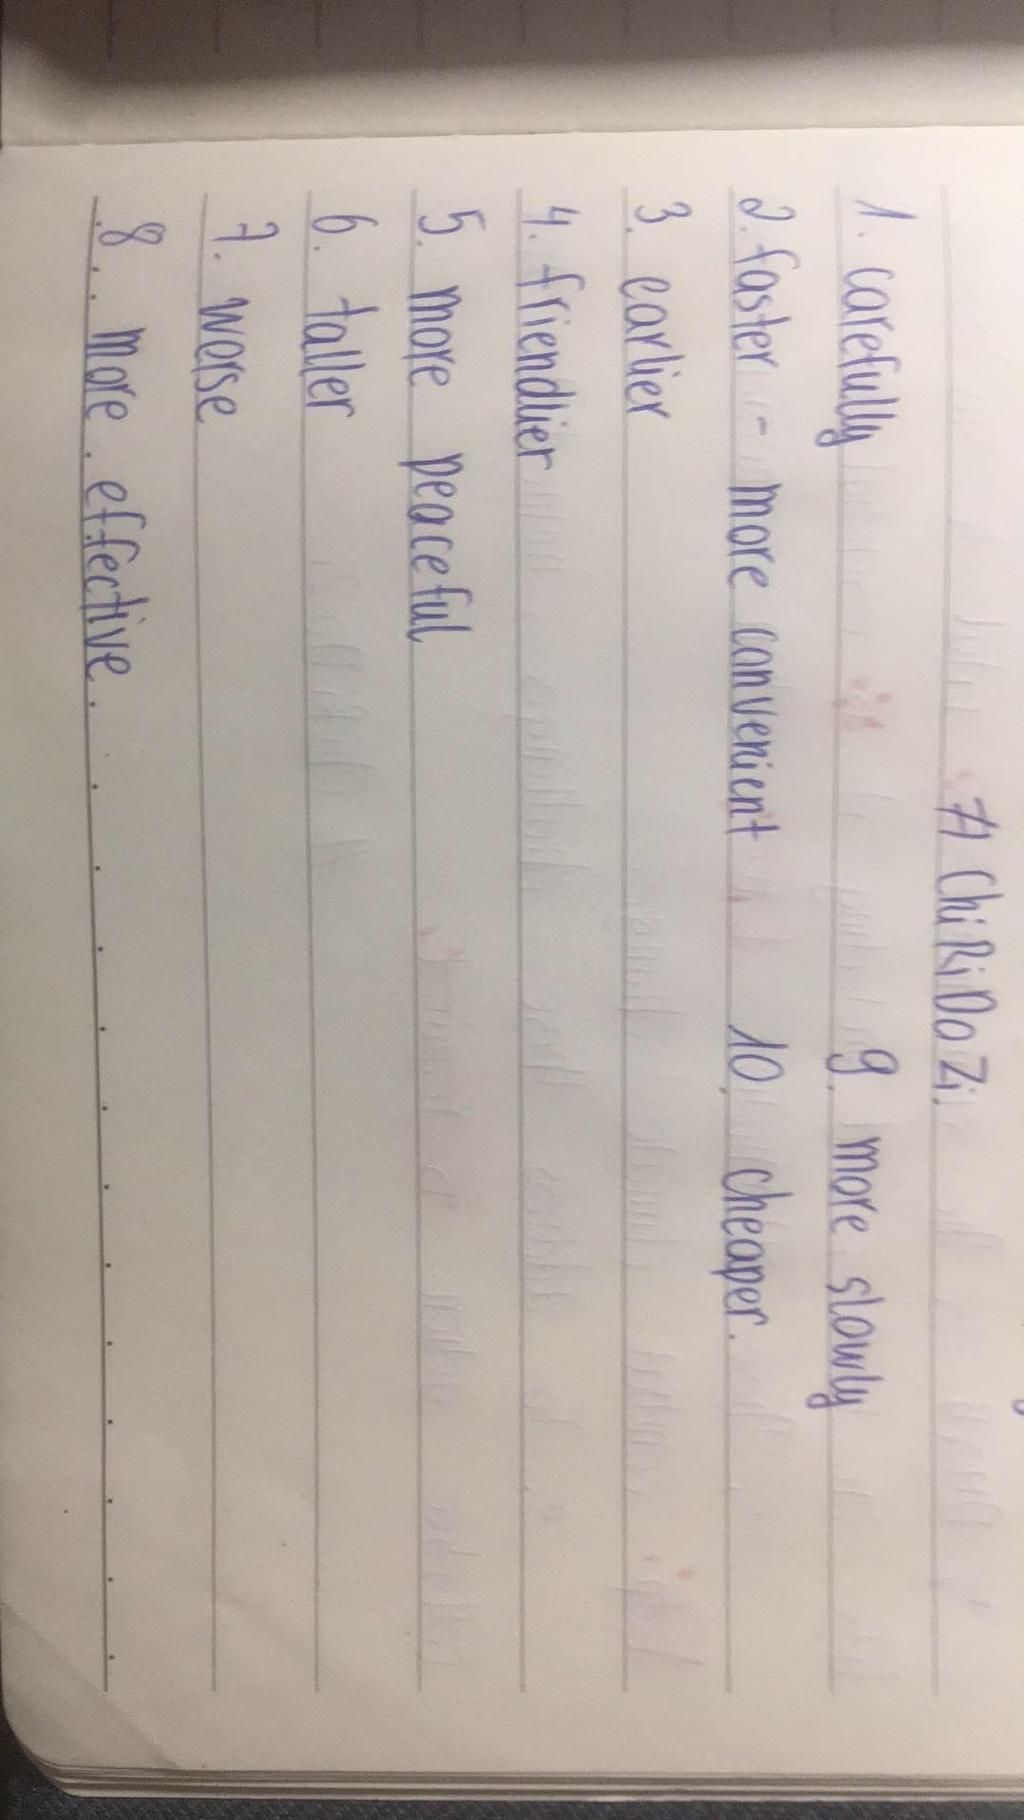 7A ChiRiDoZi.
1. carefully 9. more slowly
2. faster - more convenient 10, cheaper.
3. earlier
4. friendlier
5. more peaceful
6. taller
7. worse
8... more. effective.